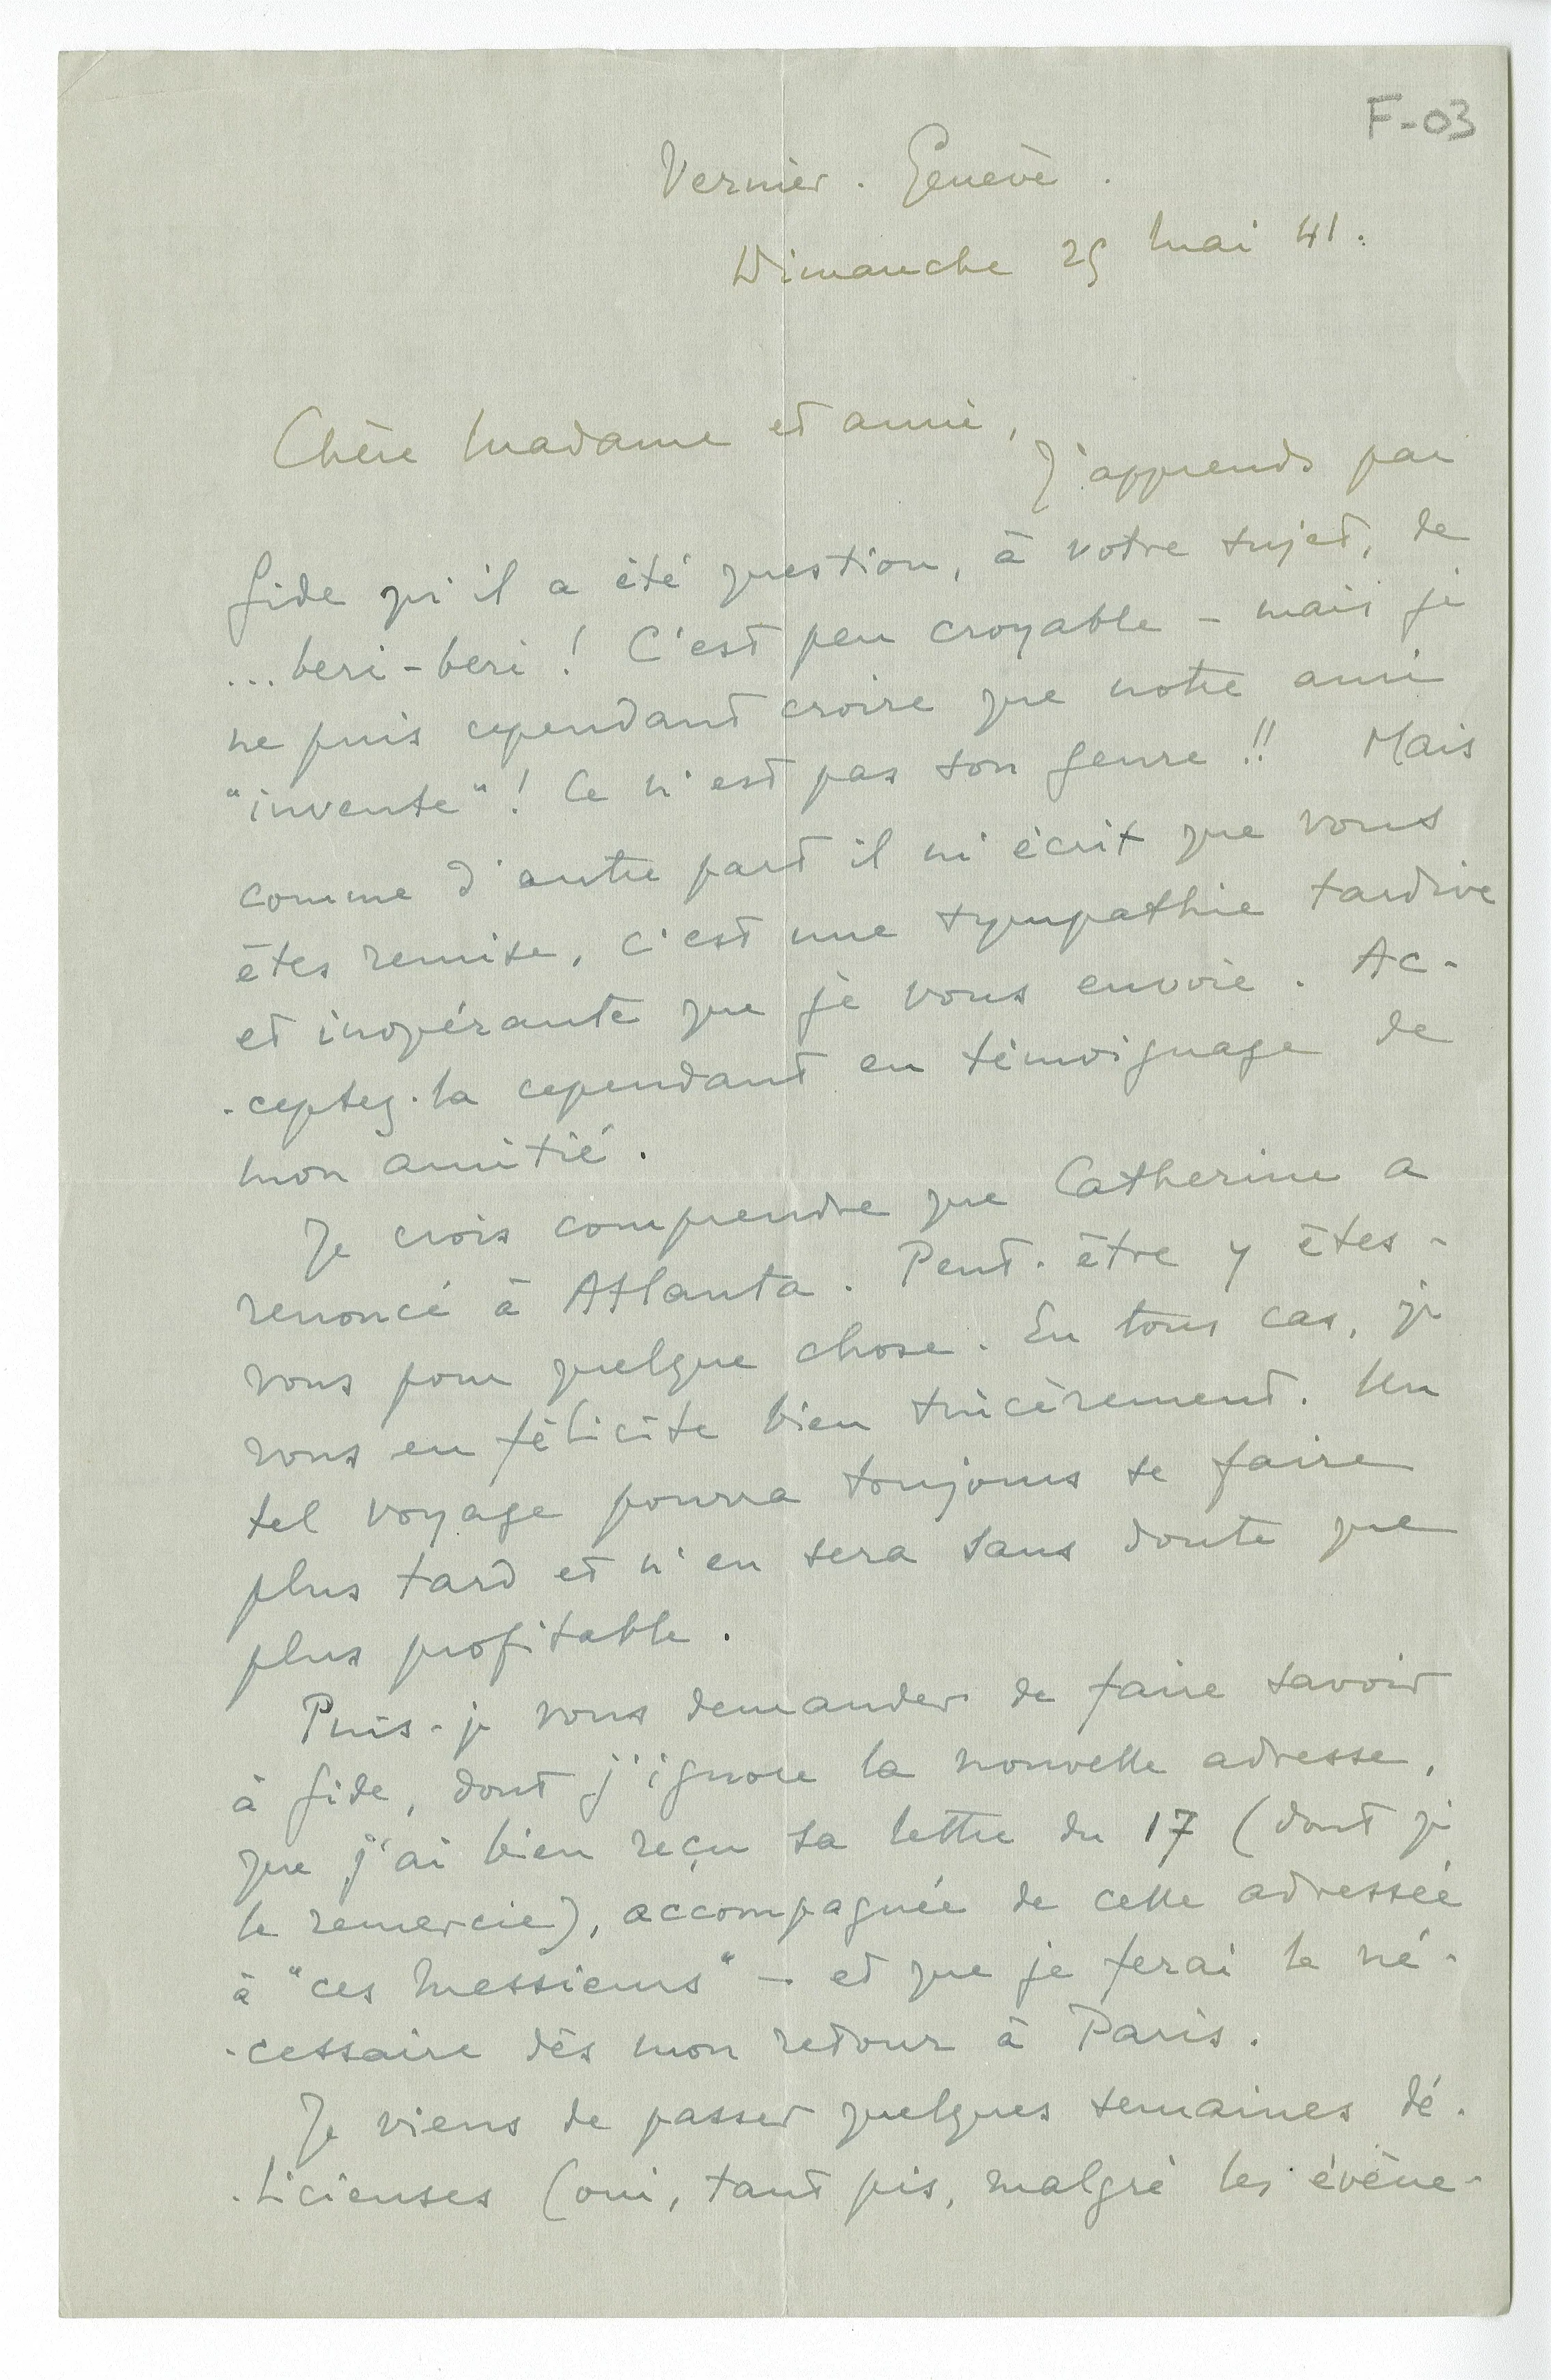 F-03
Vernier. Genève.
Dimanche 25 mai 41.
Chère Madame et amie,
J'apprends par
Gide qu'il a été question, à votre sujet, de
...beri-beri ! C'est peu croyable – mais je
ne puis cependant croire que notre ami
"invente" ! Ce n'est pas son genre !! Mais
comme d'autre part il m'écrit que vous
êtes remise, c'est une sympathie tardive
et inopérante que je vous envoie. Ac-
-ceptez-la cependant en témoignage de
mon amitié.
Je crois comprendre que Catherine a
renoncé à Atlanta. Peut-être y êtes-
vous pour quelque chose. En tous cas, je
vous en félicite bien sincèrement. Un
tel voyage pourra toujours se faire
plus tard et n'en sera sans doute que
plus profitable.
Puis-je vous demander de faire savoir
à Gide, dont j'ignore la nouvelle adresse,
que j'ai bien reçu sa lettre du 17 (dont je
le remercie), accompagnée de celle adressée
à "ces Messieurs" – et que je ferai le né-
-cessaire dès mon retour à Paris.
Je viens de passer quelques semaines dé-
-licieuses (oui, tant pis, malgré les évène-